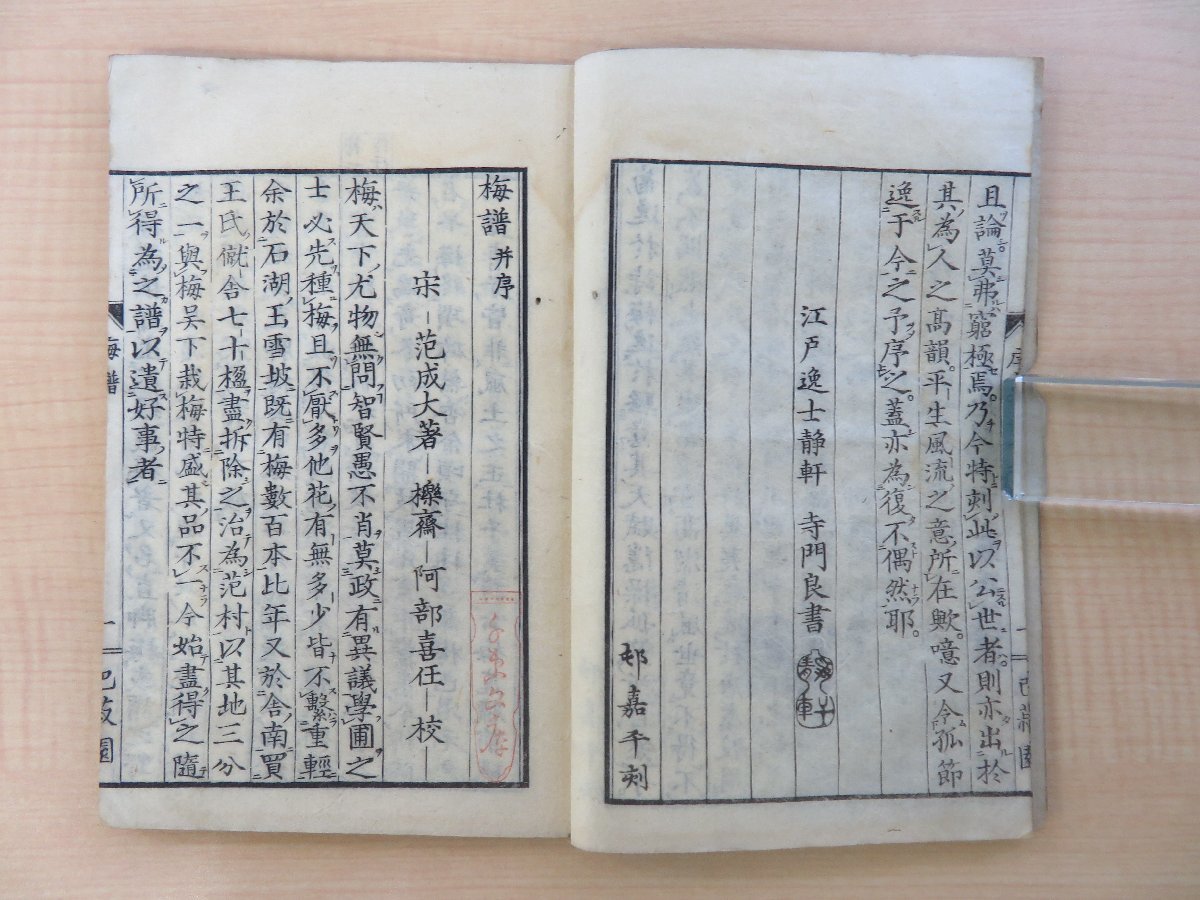 且論莫弗窮極焉。乃今特刻此以公世者。則亦出於
其為人之高韻。平生風流之意所在歟。噫又令孤節
逸于今之予序之。蓋亦為復不偶然耶。
江戸逸士静軒 寺門良書
邨嘉平刻
梅譜 并序
宋 范成大著 櫟齋 阿部喜任 校
梅天下尤物無問智賢愚不肖莫敢有異議學圃之
士必先種梅且不厭多他花有無多少皆不繫重輕
余於石湖玉雪坡既有梅數百本比年又於舍南買
王氏僦舍七十楹盡拆除之治為范村以其地三分
之一與梅吳下栽梅特盛其品不一今始盡得之隨
所得為之譜以遺好事者
梅譜